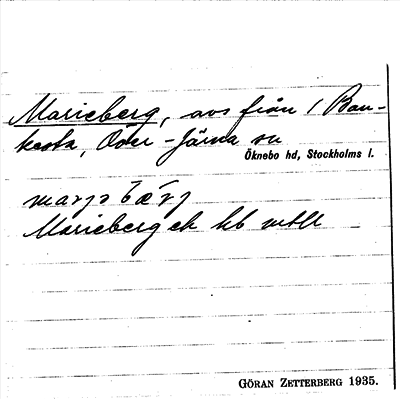 Marieberg, avs från 1 Ban-
kesta, Över-Järna sn
Öknebo hd, Stockholms l.
Marieberg ek kb mtll
GÖRAN ZETTERBERG 1935.